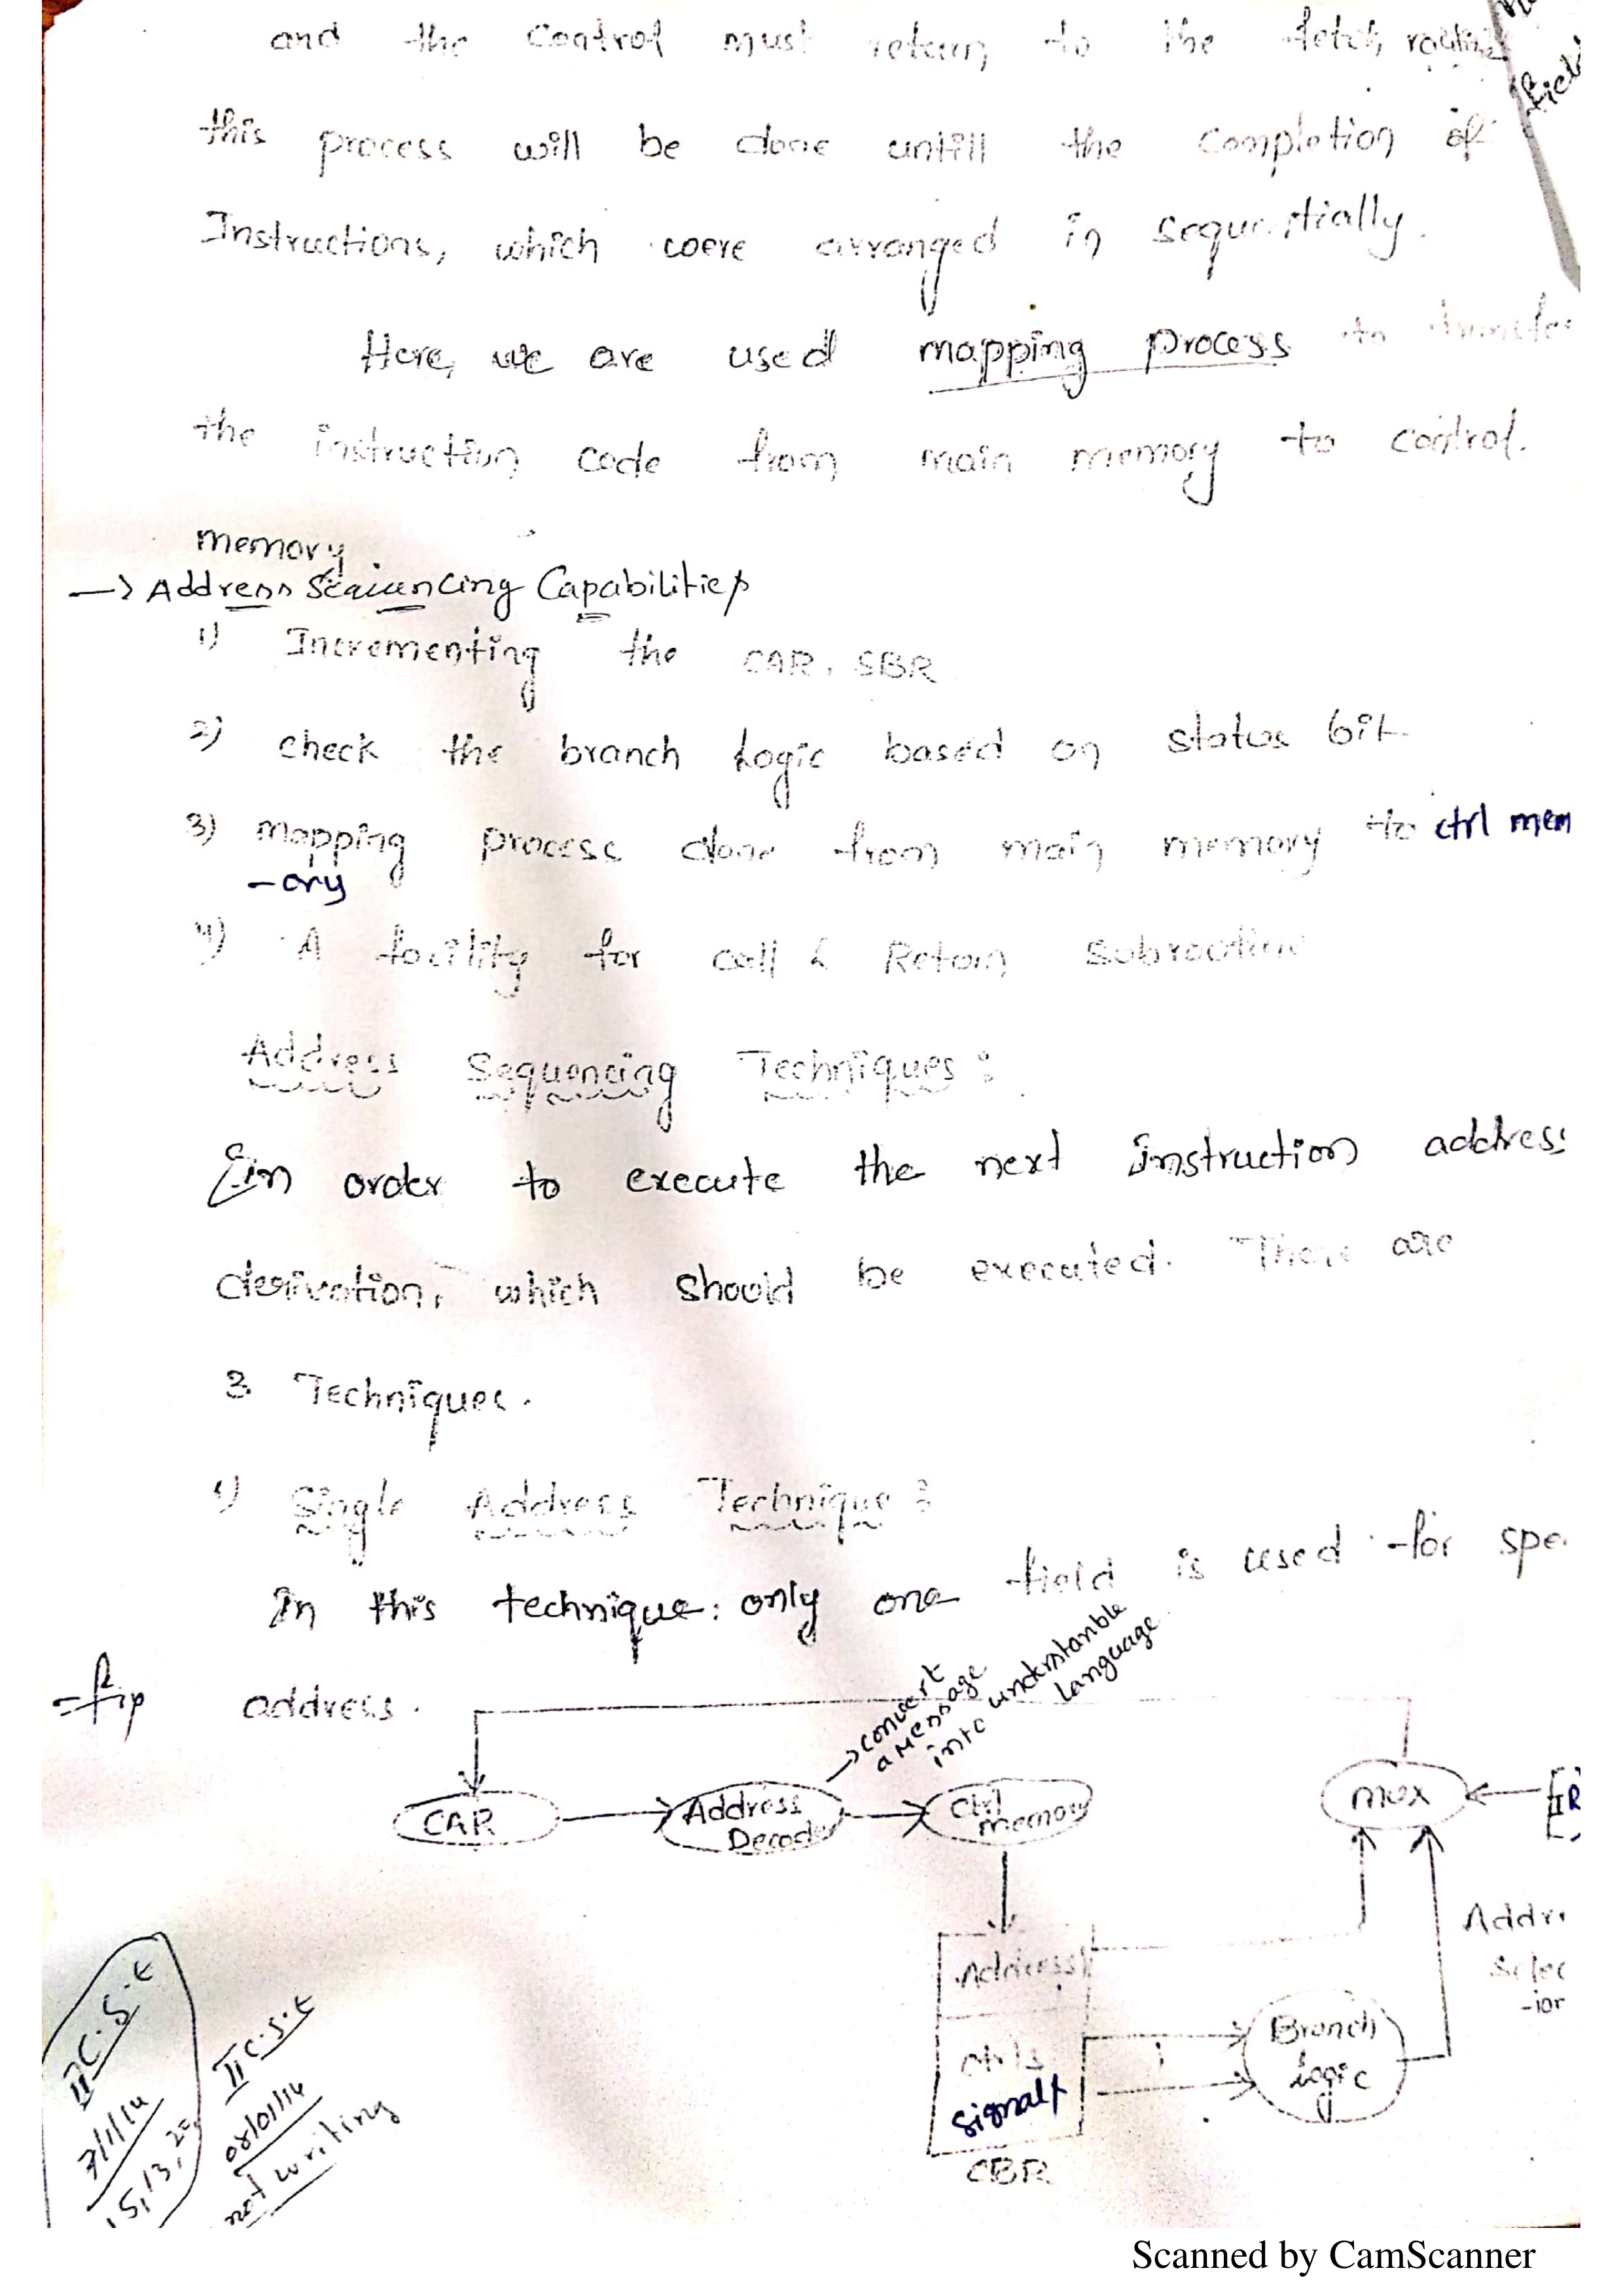 and the control must return to the fetch routine
this process will be done untill the completion of
Instructions, which were arranged in sequentially.
Here, we are used mapping process to transfer
the instruction code from main memory to control.
memory.
→ Address Sequencing Capabilities
1) Incrementing the CAR, SBR
2) check the branch Logic based on status bit.
3) mapping process done from main memory to ctrl mem
-ory
4) A facility for call & Return Subroutine
Address Sequencing Techniques:
In order to execute the next instruction address
derivation, which should be executed. There are
3 Techniques.
1) Single Address Technique:
In this technique: only one field is used for spe
address.
→ convert
a message
into understanble
language
CAR
Address
Decoder
Ctrl
memory
mux
IR
Address
ctrls
signals
CBR
Branch
Logic
Addre
Selec
-ion
II C.S.E
7/1/14
15,13,25
II C.S.E
08/01/14
not writing
Scanned by CamScanner